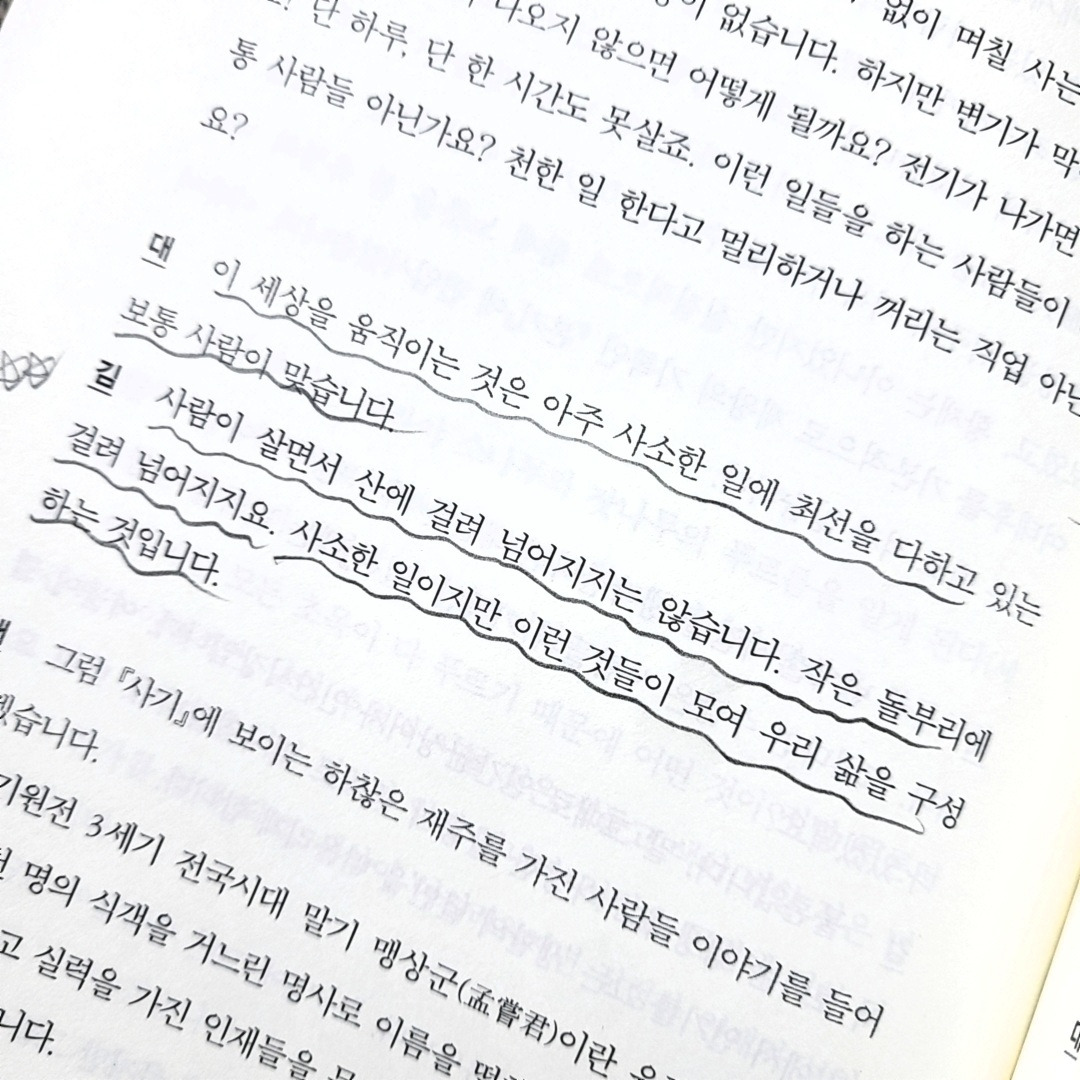 없이 며칠 사는
나오지 않으면 어떻게 될까요? 전기가 나가면
없습니다. 하지만 변기가 막
단 하루, 단 한 시간도 못살죠. 이런 일들을 하는 사람들이
통 사람들 아닌가요? 천한 일 한다고 멀리하거나 꺼리는 직업 아닌
요?
대 이 세상을 움직이는 것은 아주 사소한 일에 최선을 다하고 있는
보통 사람이 맞습니다.
김 사람이 살면서 산에 걸려 넘어지지는 않습니다. 작은 돌부리에
걸려 넘어지지요. 사소한 일이지만 이런 것들이 모여 우리 삶을 구성
하는 것입니다.
그럼 『사기』에 보이는 하찮은 재주를 가진 사람들 이야기를 들어
겠습니다.
기원전 3세기 전국시대 말기 맹상군(孟嘗君)이란
명의 식객을 거느린 명사로 이름을
고 실력을 가진 인재들을
니다.
대